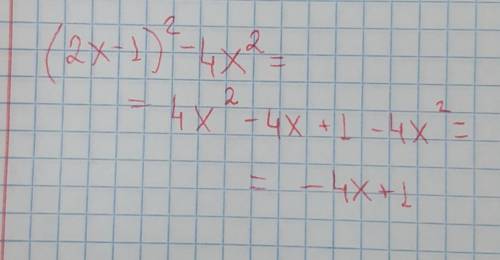 (2x-1)² - 4x² =
= 4x² - 4x + 1 - 4x² =
= -4x+1